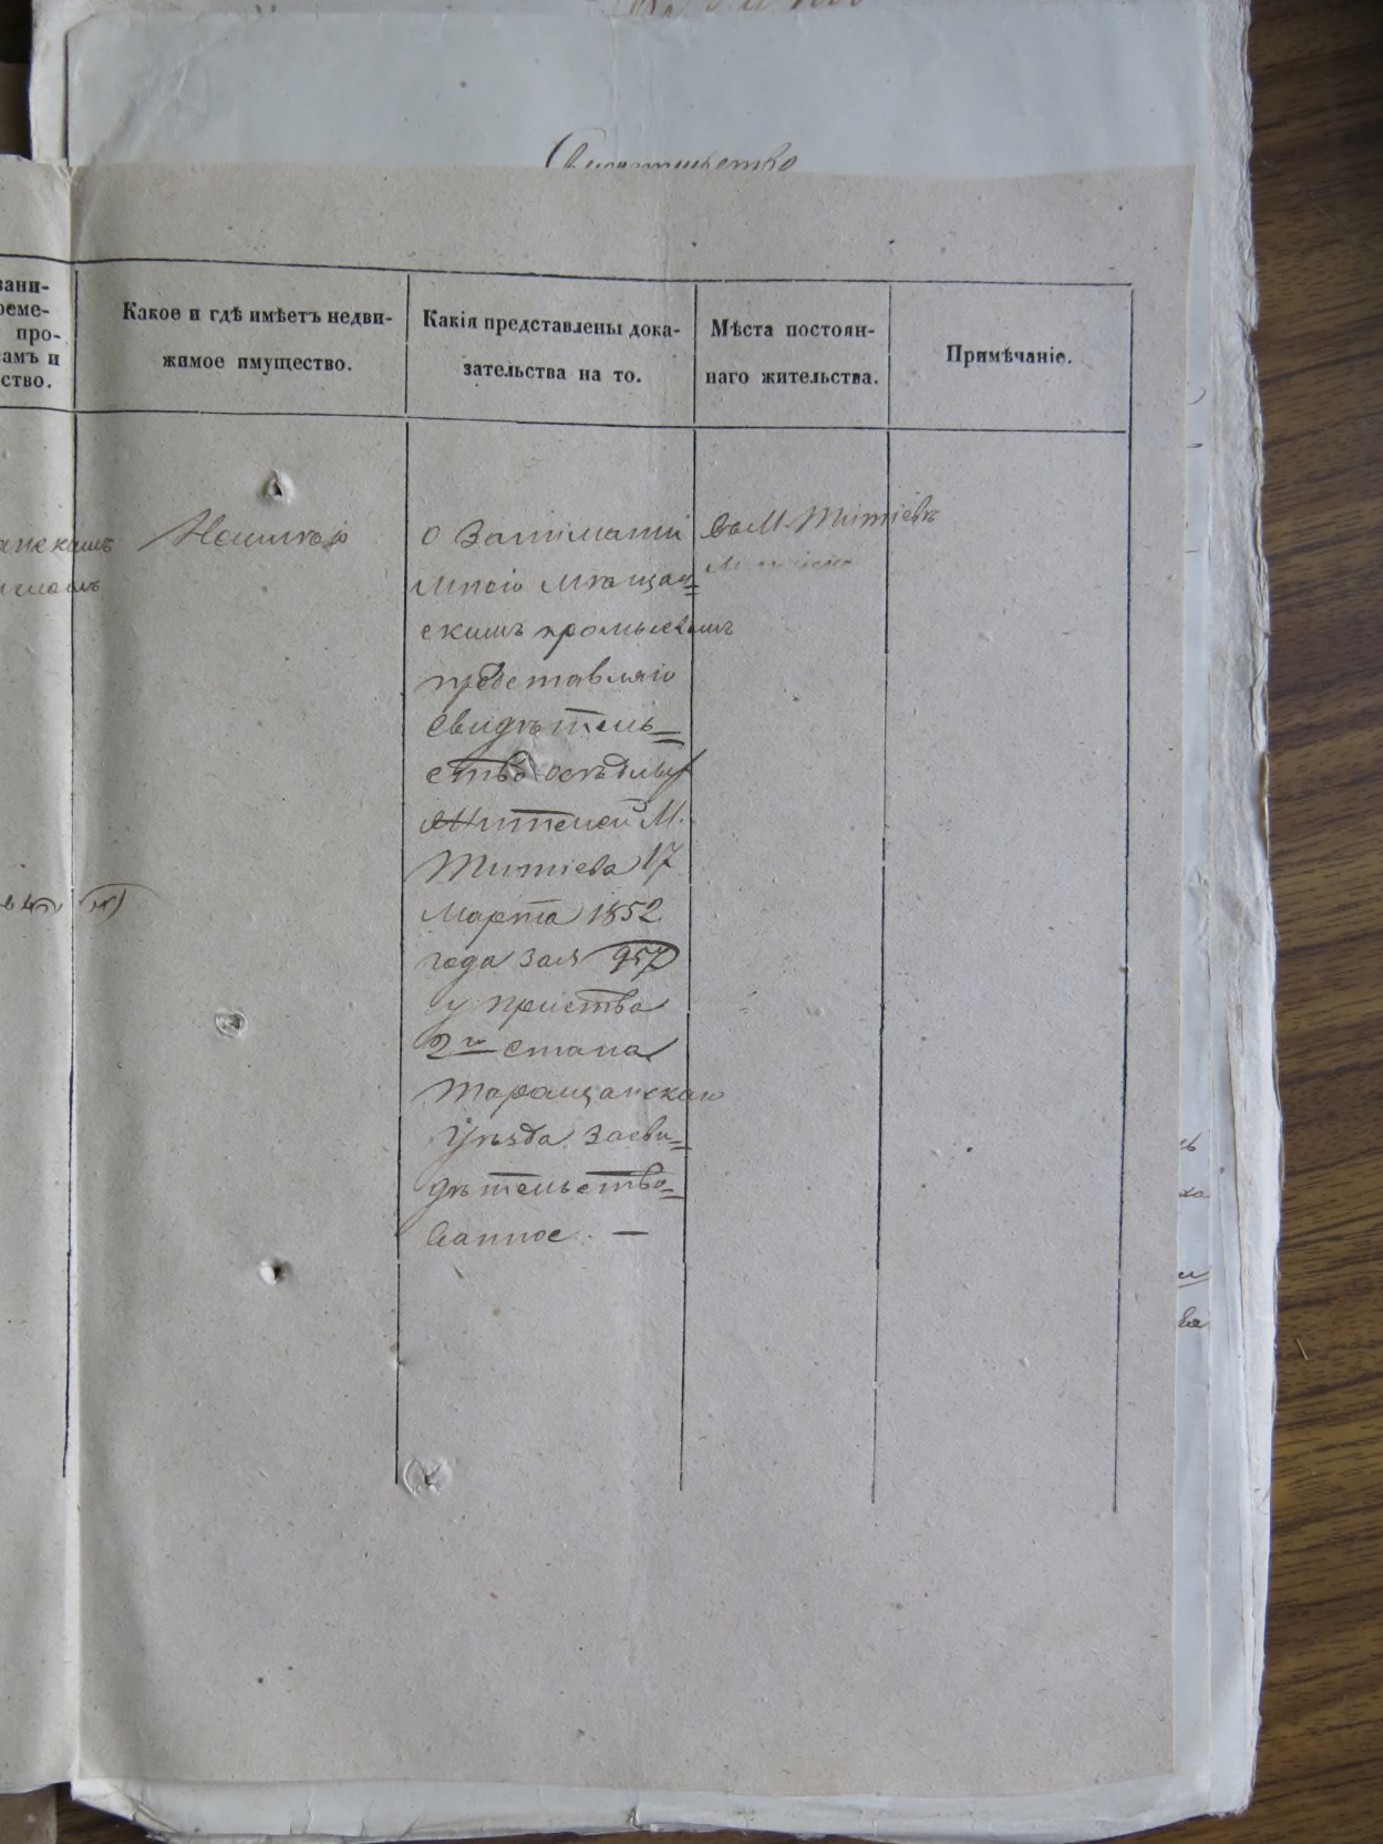 Свидетельство
зани-
реме-
про-
самъ и
ство.
Какое и гдѣ имѣетъ недви-
жимое имущество.
Какія представлены дока-
зательства на то.
Мѣста постоян-
наго жительства.
Примѣчаніе.
Неимѣю
о Заниманіи
мною мѣщан=
скимъ промысломъ
представляю
свидѣтель=
ство осѣдлых
жителей М.
Титіева 17
Марта 1852
года за № 957
у пристава
2го стана
Таращанскаго
Уѣзда Засви=
дѣтельство=
ванное. —
въ М. Титіевѣ